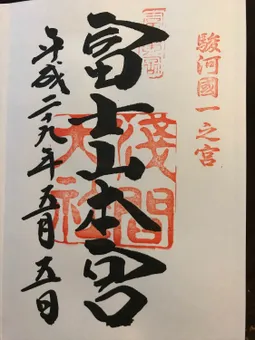 駿河國一之宮
富士山本宮
淺間
大社
平成二十九年五月五日